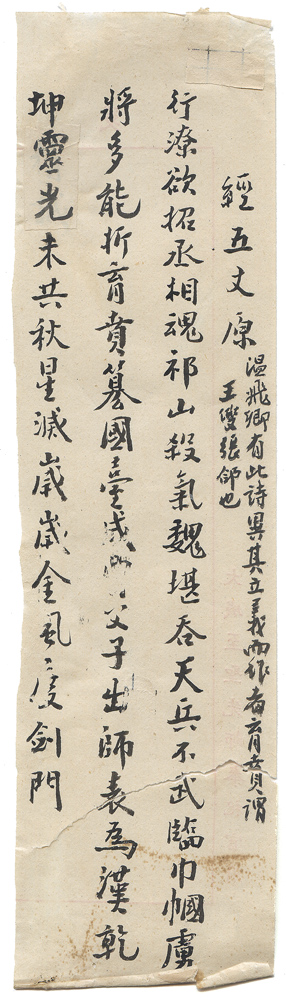 經五丈原
温飛卿有此詩異其立義而作者育賁謂
王雙張郃也
行潦欲招丞相魂祁山殺氣魏堪吞天兵不武臨巾幗虜
將多能折育賁篡國臺成父子出師表為漢乾
坤靈光未共秋星滅歲歲金風度劍門